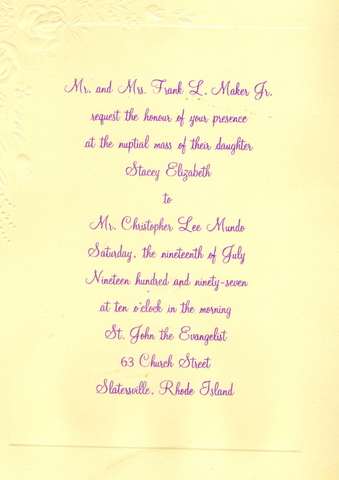 Mr. and Mrs. Frank L. Maker Jr.
request the honour of your presence
at the nuptial mass of their daughter
Stacey Elizabeth
to
Mr. Christopher Lee Mundo
Saturday, the nineteenth of July
Nineteen hundred and ninety-seven
at ten o'clock in the morning
St. John the Evangelist
63 Church Street
Slatersville, Rhode Island